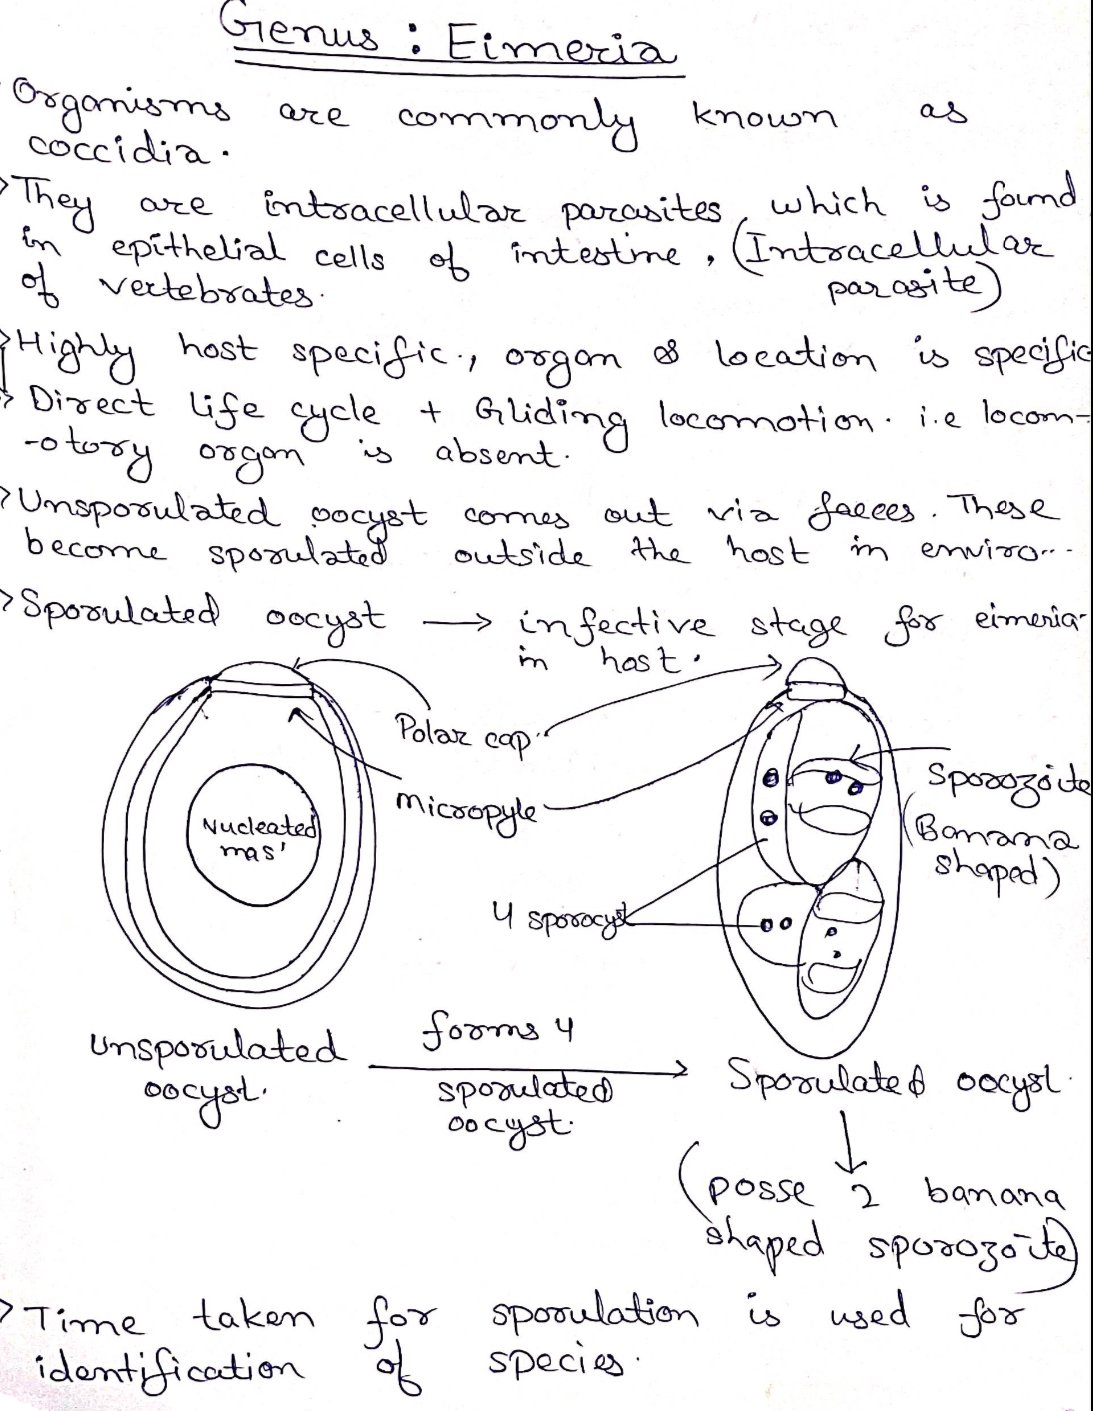 Genus : Eimeria
Organisms are commonly known as
coccidia.
They are intracellular parasites, which is found
in epithelial cells of intestine, (Intracellular
of vertebrates. parasite)
Highly host specific., organ & location is specific
Direct life cycle + Gliding locomotion. i.e locom-
-otory organ is absent.
Unsporulated oocyst comes out via faeces. These
become sporulated outside the host in enviro...
Sporulated oocyst → infective stage for eimeria
in host.
Polar cap
micropyle
Nucleated
mas'
Sporozoite
(Banana
shaped)
4 sporocyst
unsporulated
oocyst.
forms 4
sporulated
oocyst.
Sporulated oocyst.
(posse 2 banana
shaped sporozoite)
Time taken for sporulation is used for
identification of species.